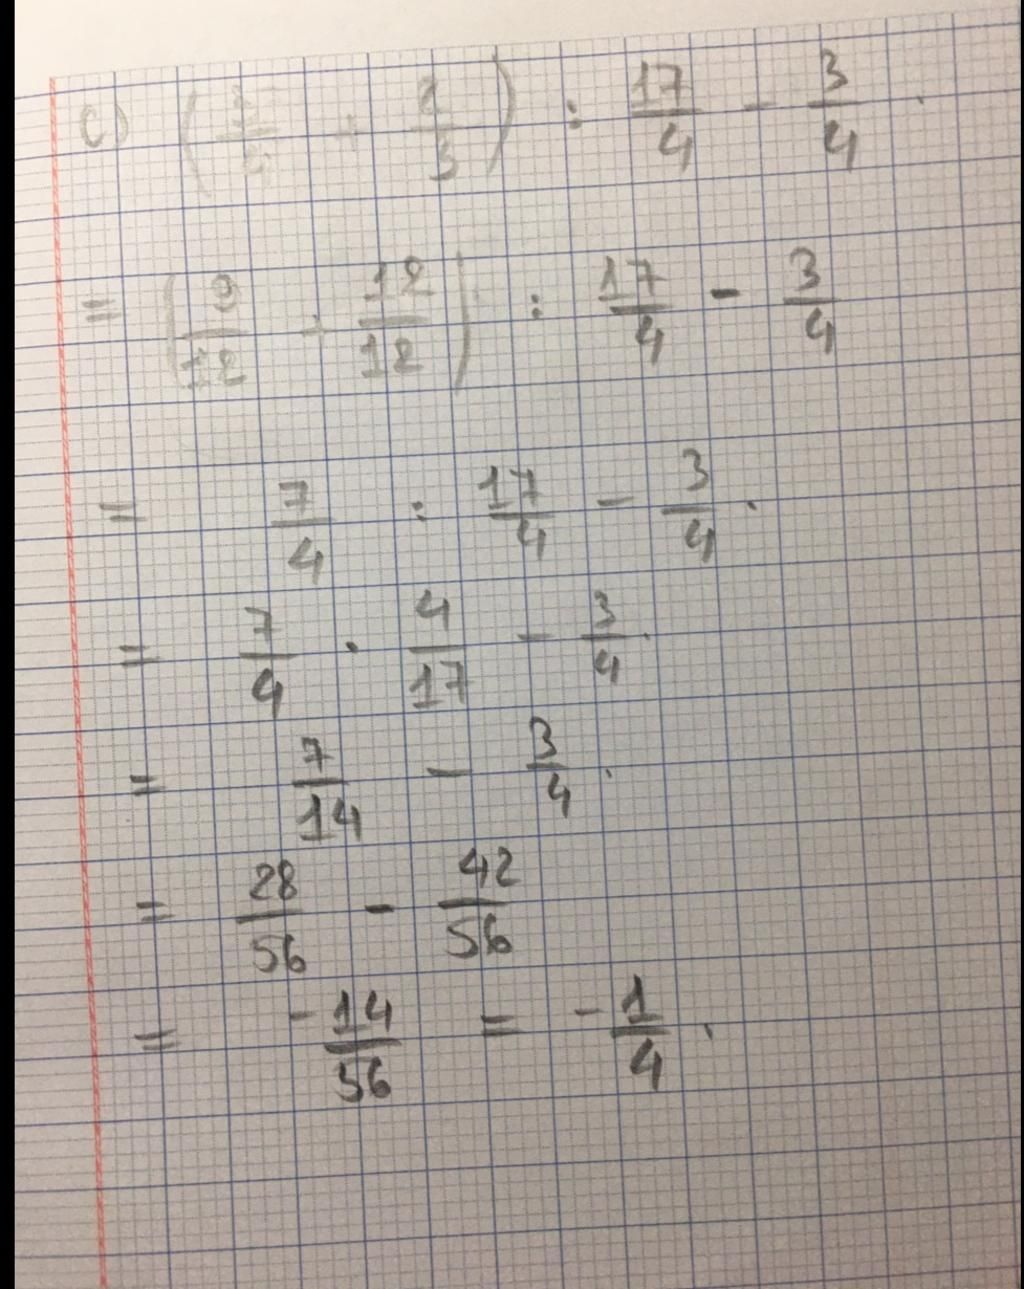 c) ( + ) : 17/4 - 3/4
= (9/12 + 12/12) : 17/4 - 3/4
= 7/4 : 17/4 - 3/4 .
= 7/4 . 4/17 - 3/4 .
= 7/14 - 3/4 .
= 28/56 - 42/56
= -14/56 = -1/4 .